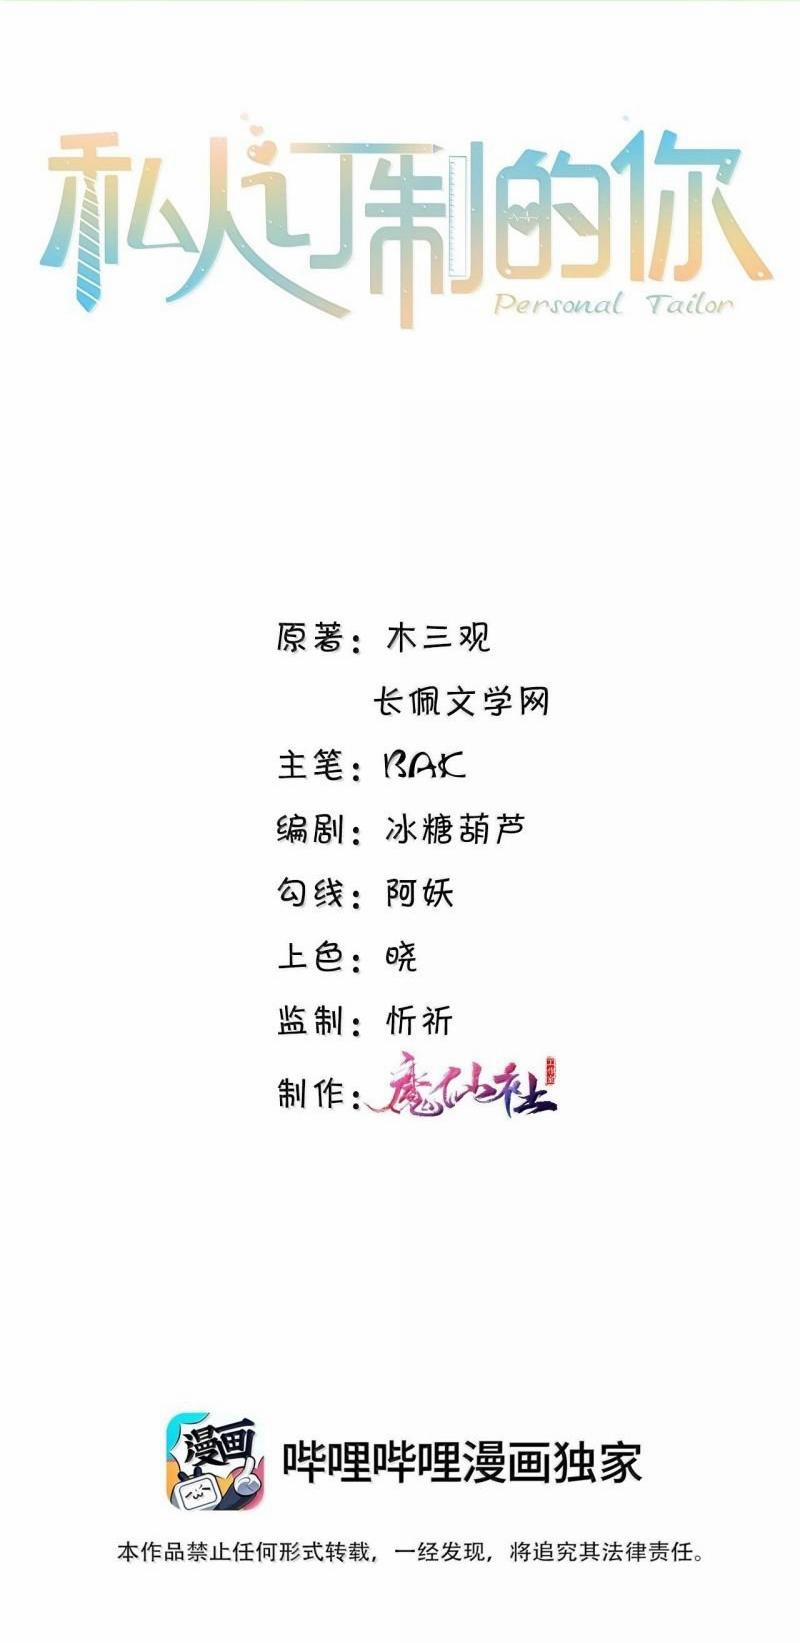 私人订制的你
Personal Tailor
原著：木三观
长佩文学网
主笔：BAK
编剧：冰糖葫芦
勾线：阿妖
上色：晓
监制：忻祈
制作：魔仙社工作室
漫画
哔哩哔哩漫画独家
本作品禁止任何形式转载，一经发现，将追究其法律责任。